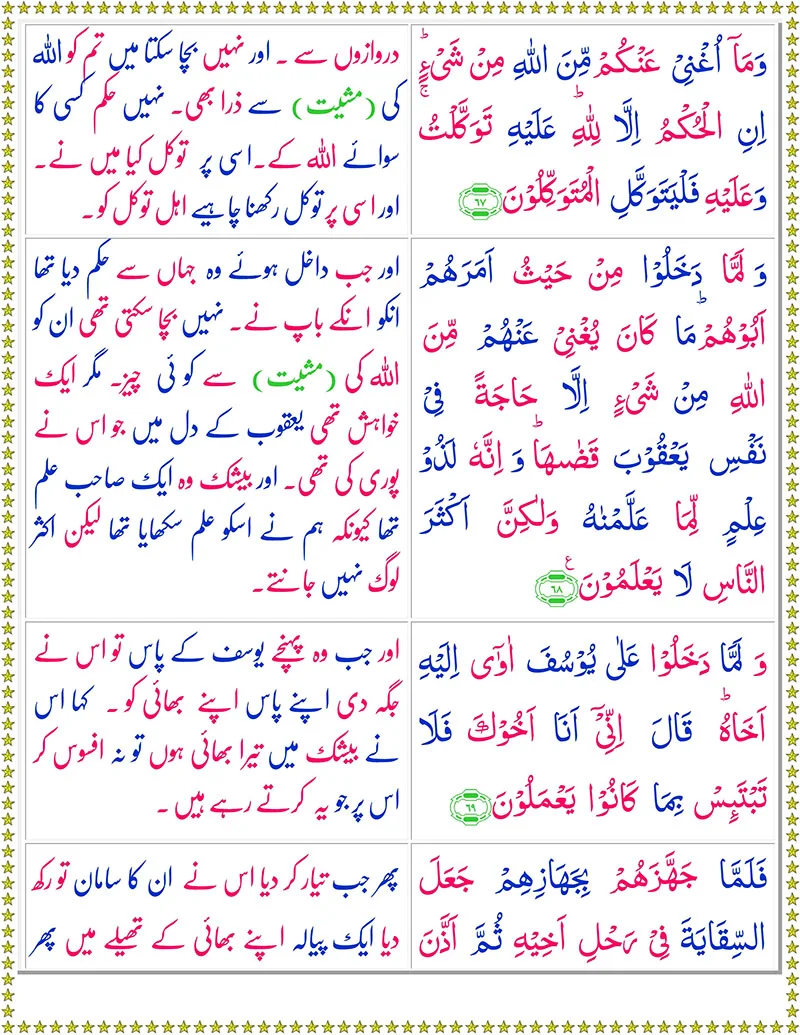 وَمَاۤ اُغۡنِىۡ عَنۡكُمۡ مِّنَ اللّٰهِ مِنۡ شَىۡءٍ‌ؕ
اِنِ الۡحُكۡمُ اِلَّا لِلّٰهِ‌ؕ عَلَيۡهِ تَوَكَّلۡتُ‌ۚ
وَعَلَيۡهِ فَلۡيَتَوَكَّلِ الۡمُتَوَكِّلُوۡنَ ﴿۶۷﴾
دروازوں سے ۔ اور نہیں بچا سکتا میں تم کو اللہ
کی (مشیت) سے ذرا بھی۔ نہیں حکم کسی کا
سوائے اللہ کے۔اسی پر توکل کیا میں نے۔
اور اسی پر توکل رکھنا چاہیے اہل توکل کو۔
وَ لَمَّا دَخَلُوۡا مِنۡ حَيۡثُ اَمَرَهُمۡ
اَبُوۡهُمۡؕ مَا كَانَ يُغۡنِىۡ عَنۡهُمۡ مِّنَ
اللّٰهِ مِنۡ شَىۡءٍ اِلَّا حَاجَةً فِىۡ
نَفۡسِ يَعۡقُوۡبَ قَضٰٮهَا‌ؕ وَاِنَّهٗ لَذُوۡ
عِلۡمٍ لِّمَا عَلَّمۡنٰهُ وَلٰكِنَّ اَكۡثَرَ
النَّاسِ لَا يَعۡلَمُوۡنَ ﴿۶۸﴾ ع
اور جب داخل ہوئے وہ جہاں سے حکم دیا تھا
انکو انکے باپ نے۔ نہیں بچا سکتی تھی ان کو
اللہ کی (مشیت) سے کوئی چیز۔ مگر ایک
خواہش تھی یعقوب کے دل میں جو اس نے
پوری کی تھی۔ اور بیشک وہ ایک صاحب علم
تھا کیونکہ ہم نے اسکو علم سکھایا تھا لیکن اکثر
لوگ نہیں جانتے۔
وَ لَمَّا دَخَلُوۡا عَلٰى يُوۡسُفَ اٰوٰٓى اِلَيۡهِ
اَخَاهُ‌ؕ قَالَ اِنِّىۡۤ اَنَا اَخُوۡكَ فَلَا
تَبۡتَٮِٕسۡ بِمَا كَانُوۡا يَعۡمَلُوۡنَ ﴿۶۹﴾
اور جب وہ پہنچے یوسف کے پاس تو اس نے
جگہ دی اپنے پاس اپنے بھائی کو ۔ کہا اس
نے بیشک میں تیرا بھائی ہوں تو نہ افسوس کر
اس پر جو یہ کرتے رہے ہیں ۔
فَلَمَّا جَهَّزَهُمۡ بِجَهَازِهِمۡ جَعَلَ
السِّقَايَةَ فِىۡ رَحۡلِ اَخِيۡهِ ثُمَّ اَذَّنَ
پھر جب تیار کر دیا اس نے ان کا سامان تو رکھ
دیا ایک پیالہ اپنے بھائی کے تھیلے میں پھر